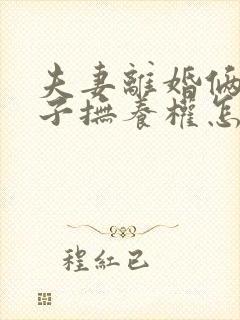 夫妻離婚俩
子撫養權怎
程紅已